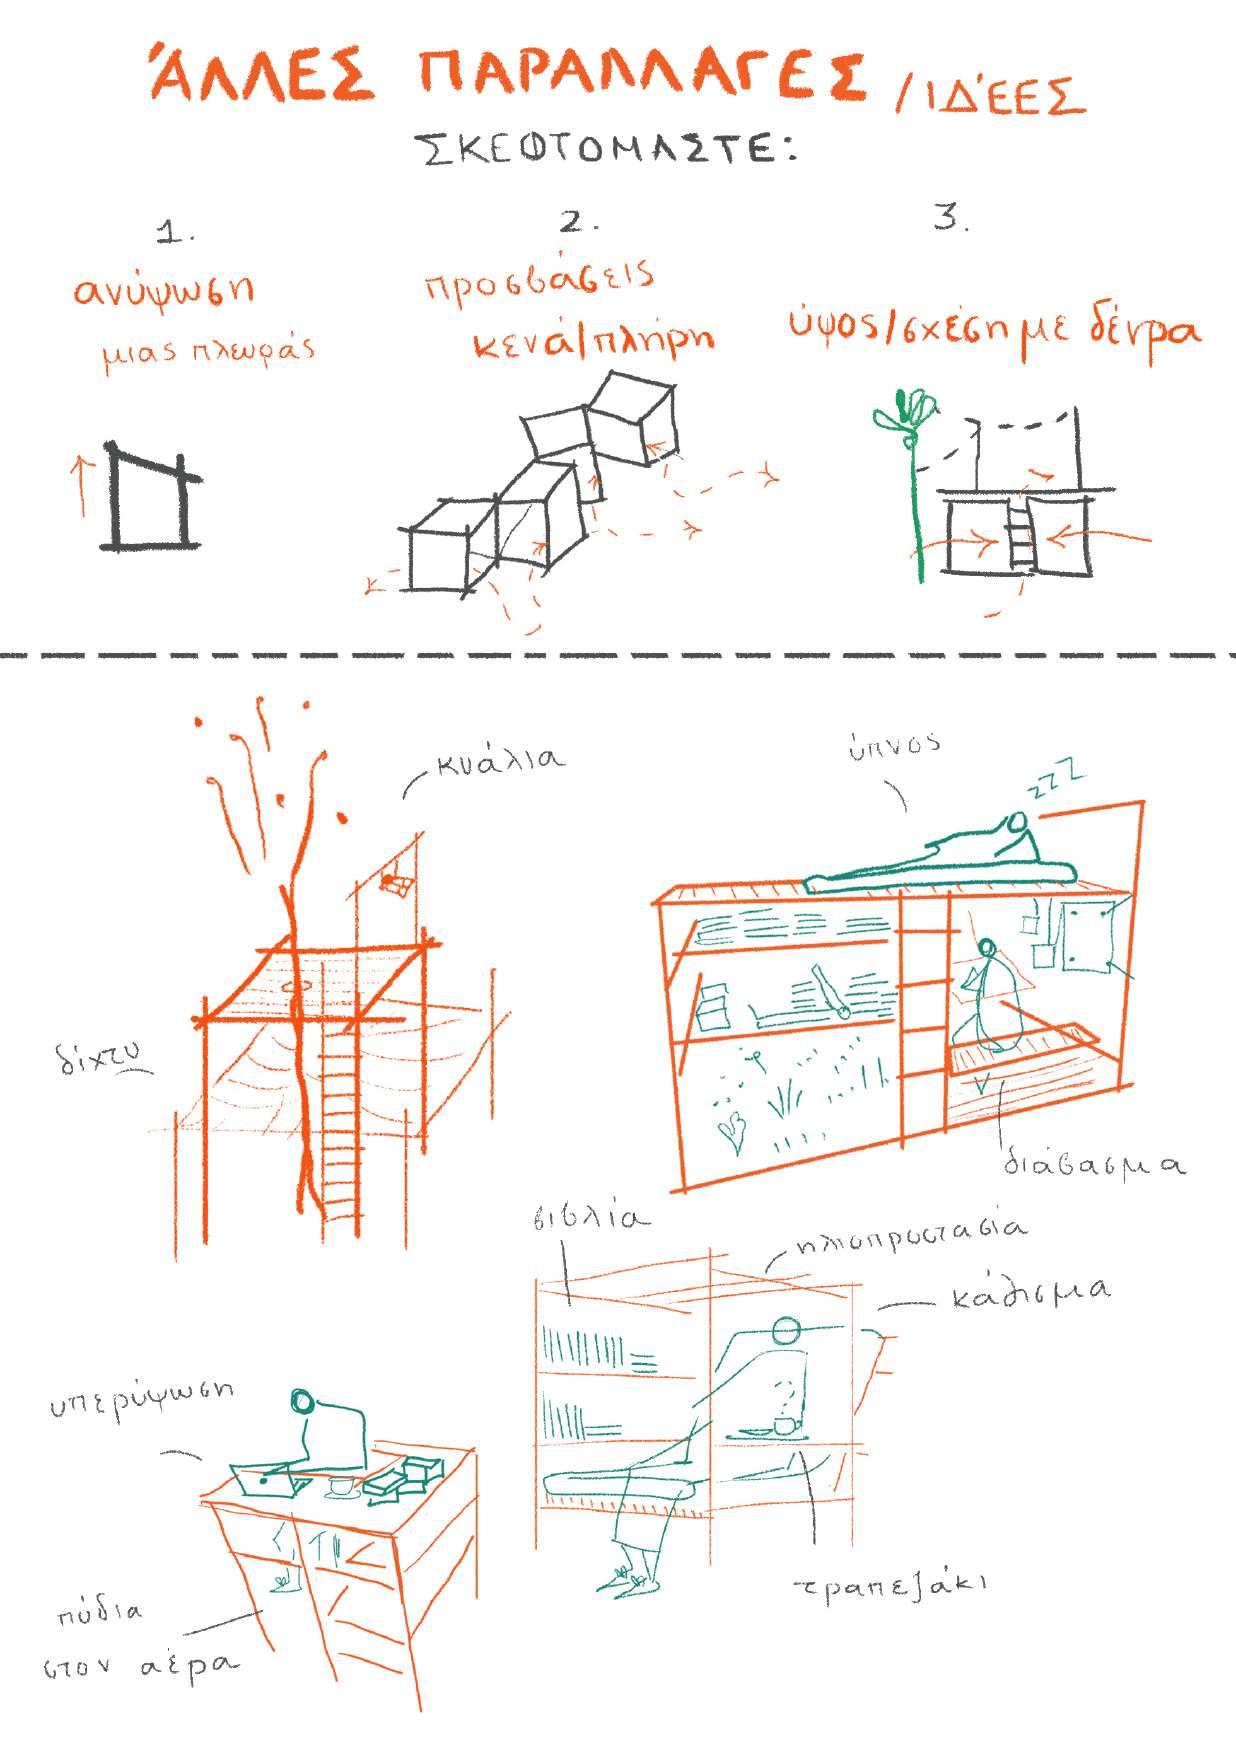 ΆΛΛΕΣ ΠΑΡΑΛΛΑΓΕΣ / ΙΔΈΕΣ
ΣΚΕΦΤΟΜΑΣΤΕ:
1.
ανύψωση
μιας πλευράς
2.
προσβάσεις
κενά/πλήρη
3.
ύψος/σχέση με δέντρα
κυάλια
δίχτυ
ύπνος
zzz
διάβασμα
βιβλία
ηλιοπροστασία
κάθισμα
τραπεζάκι
υπερύψωση
πόδια
στον αέρα